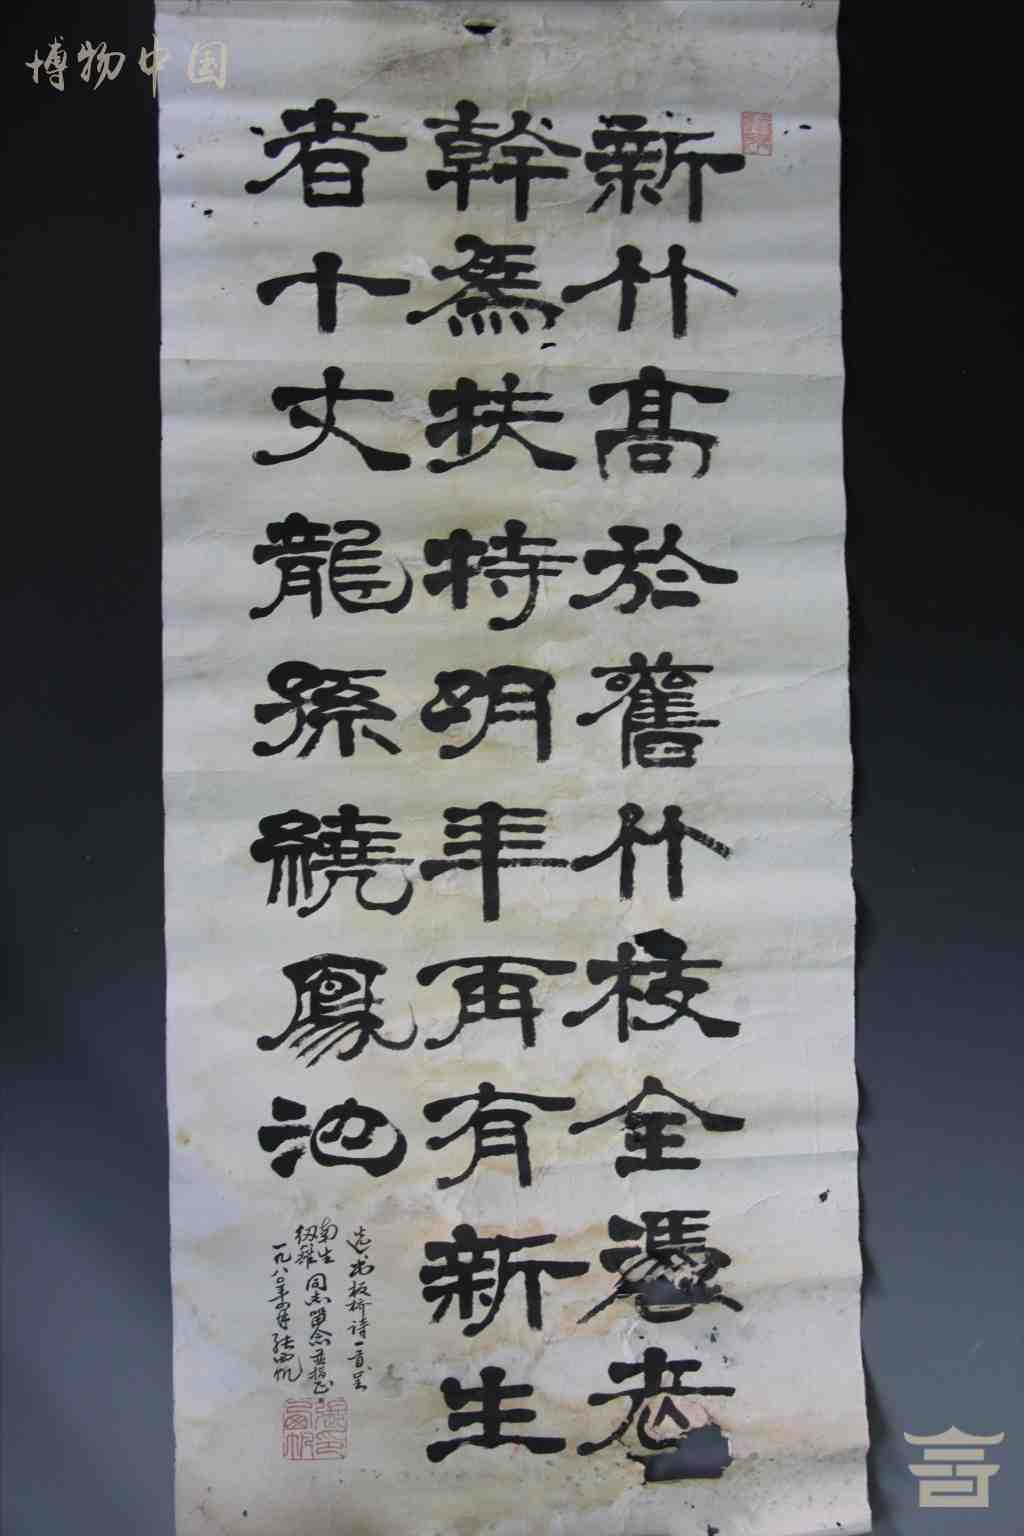 博物中国
新竹高於舊竹枝全憑老
幹為扶持明年再有新生
者十丈龍孫繞鳳池
选书板桥诗一首呈
南生
级雅 同志留念并指正
一九八〇年 张西帆
张西帆印